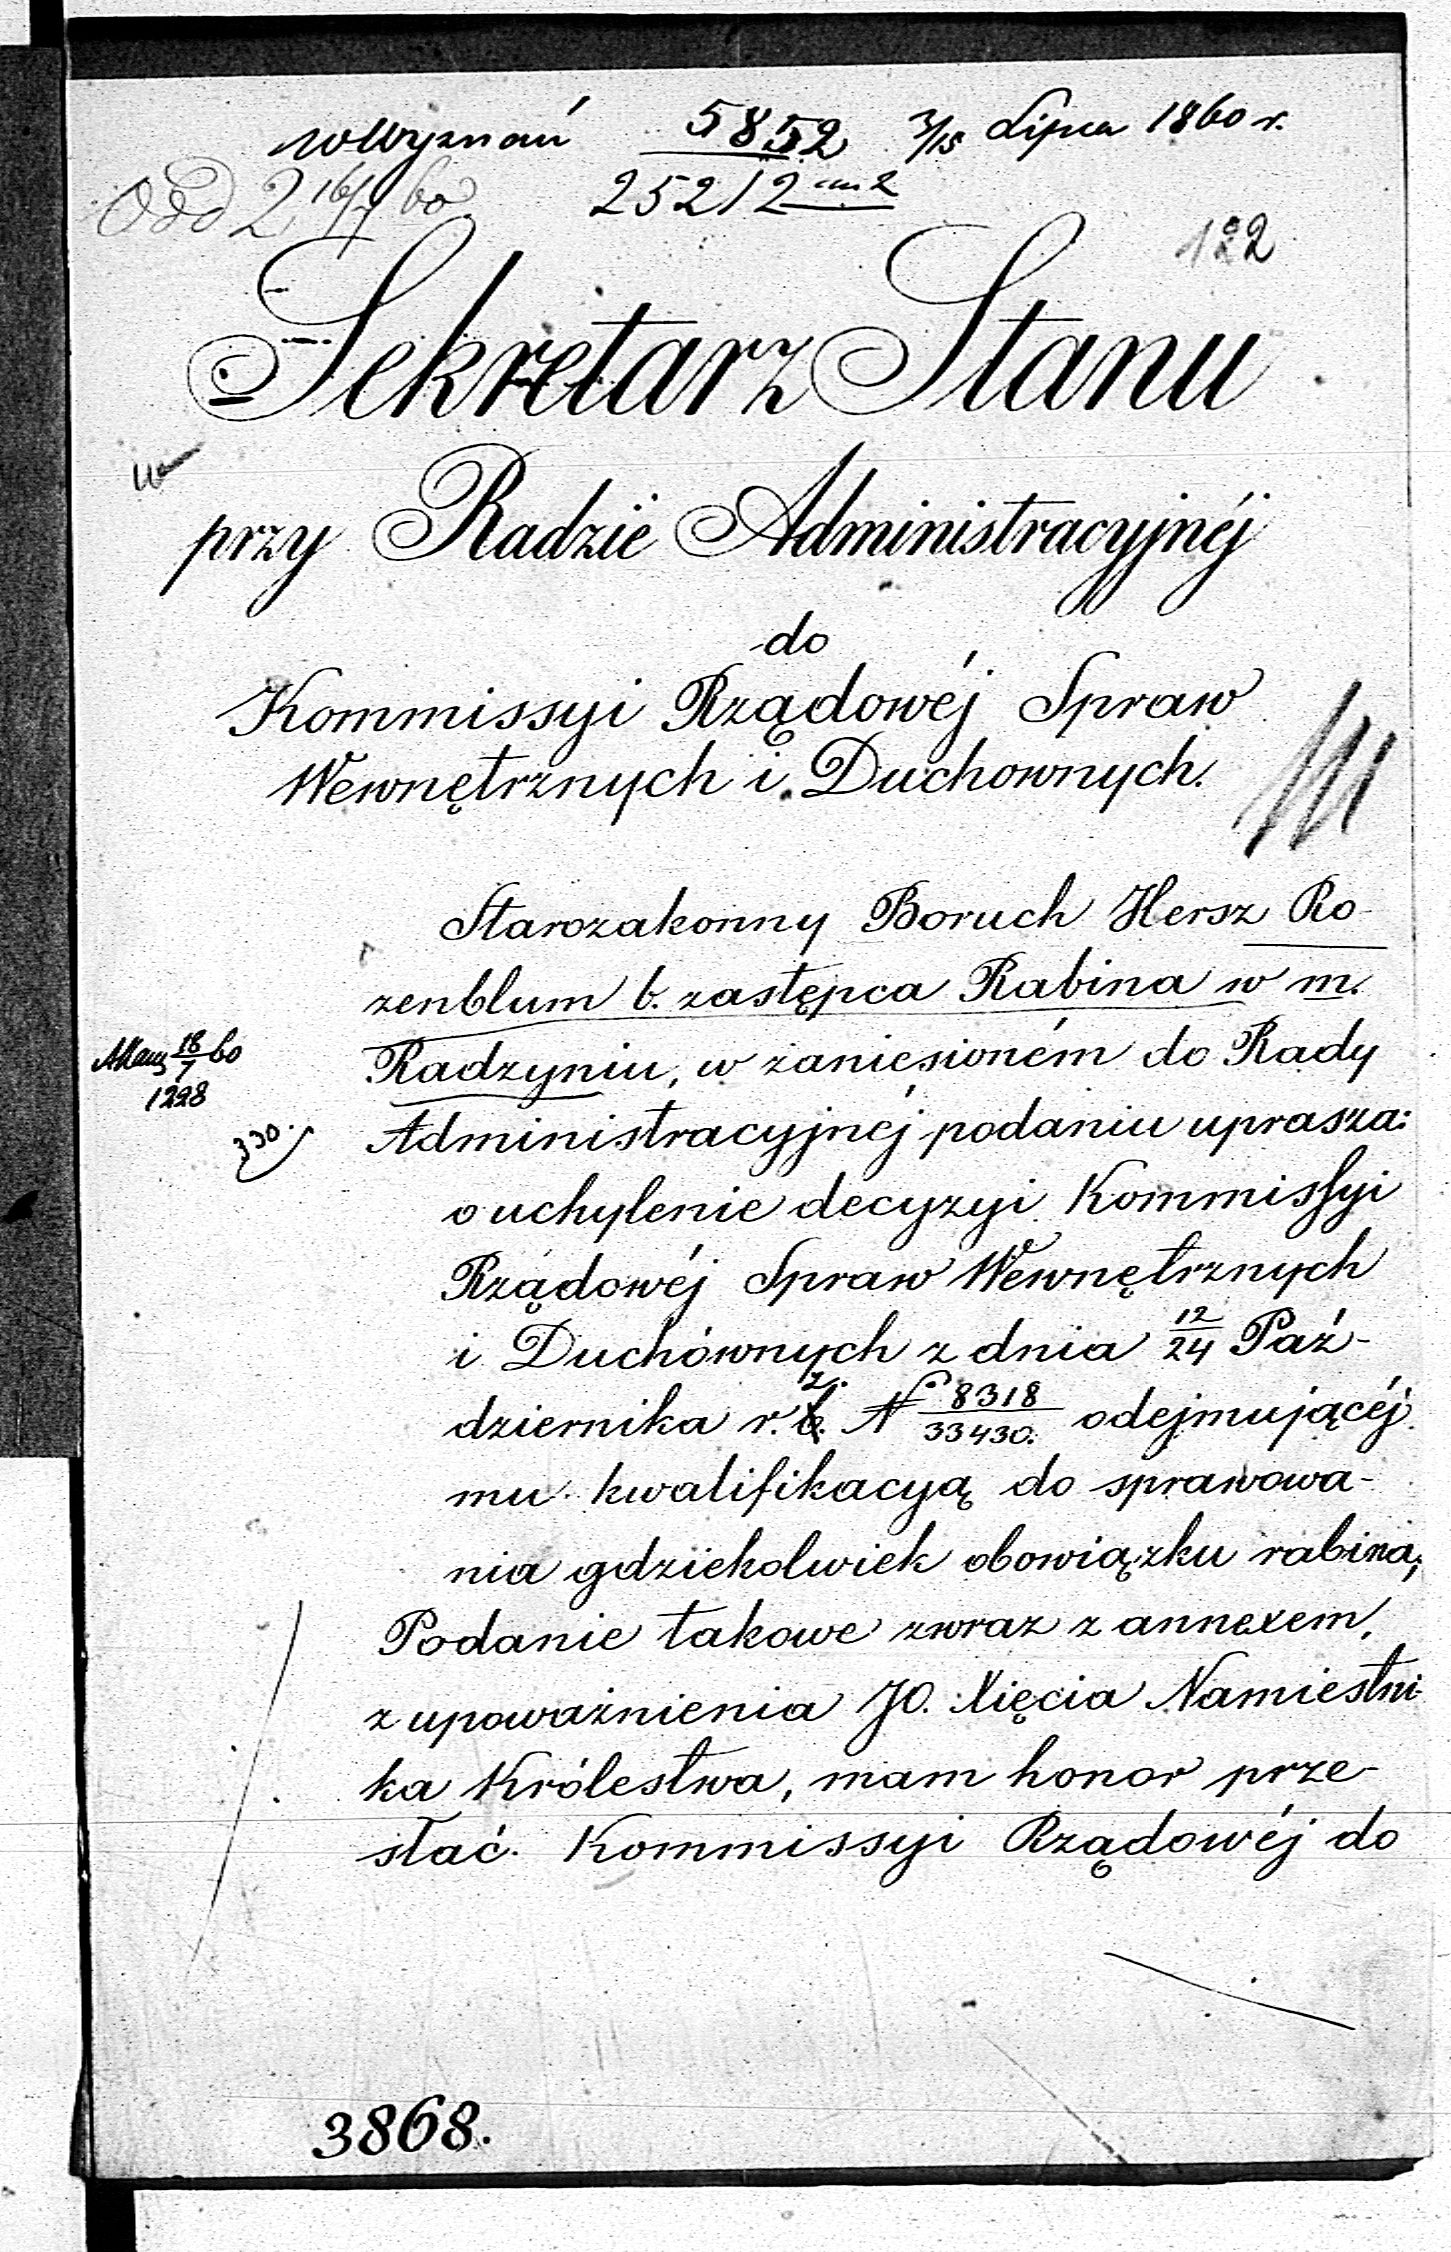 WWyznań 5852 3/15 Lipca 1860 r.
Odd 2 16/7 60 25212
122
Sekretarz Stanu
przy Radzie Administracyjnéj
do
Kommissyi Rządowéj Spraw
Wewnętrznych i Duchownych.
Starozakonny Boruch Hersz Ro-
zenblum b. zastępca Rabina w m.
Radzyniu, w zaniesioném do Rady
Administracyjnéj podaniu uprasza:
o uchylenie decyzyi Kommissyi
Rządowéj Spraw Wewnętrznych
i Duchównych z dnia 12/24 Paź-
dziernika r. z. N° 8318/33430. odejmującéj
mu kwalifikacyą do sprawowa-
nia gdziekolwiek obowiązku rabina,
Podanie takowe zwraz z annexem,
z upoważnienia JO. Xięcia Namiestni-
ka Królestwa, mam honor prze-
słać Kommissyi Rządowéj do
18/7 60
1228
330.
3868.